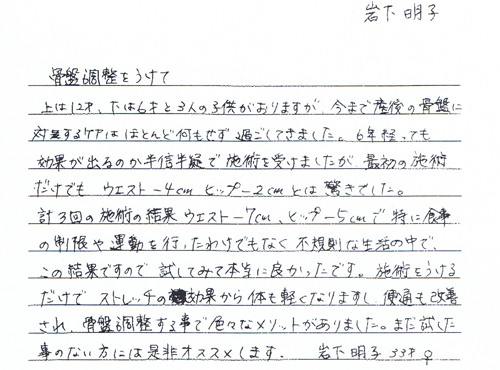 岩下明子
骨盤調整をうけて
上は12才、下は6才と3人の子供がありますが、今まで産後の骨盤に
対するケアはほとんど何もせず過ごしてきました。6年経っても
効果が出るのか半信半疑で施術を受けましたが、最初の施術
だけでも ウエスト−4cm ヒップ−2cmとは驚きでした。
計3回の施術の結果ウエスト−7cm、ヒップ−5cmで特に食事
の制限や運動を行ったわけでもなく不規則な生活の中で、
この結果ですので試してみて本当に良かったです。施術をうける
だけでストレッチの効果から体も軽くなりますし 便通も改善
され、骨盤調整する事で色々なメリットがありました。まだ試した
事のない方には是非オススメします. 岩下明子 33才 ♀